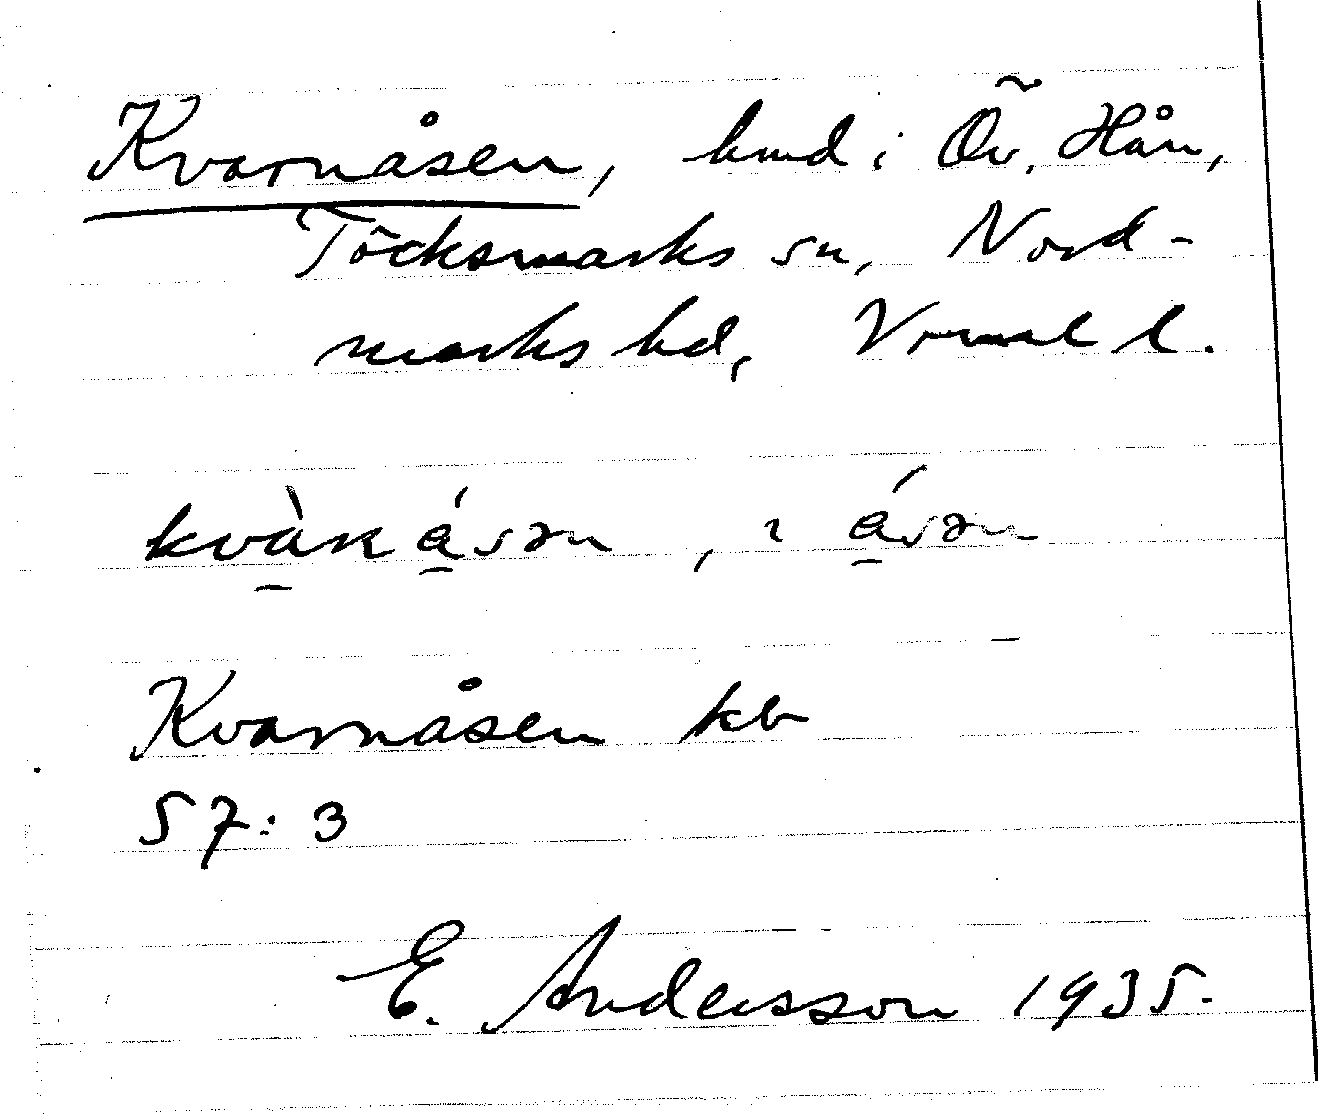 Kvarnåsen, hmd i Öv. Hån,
Töcksmarks sn, Nord-
marks hd, Vrml l.
kvàṉá̱sən, ı á̱sən
Kvarnåsen kb
57:3
E. Andersson 1935.